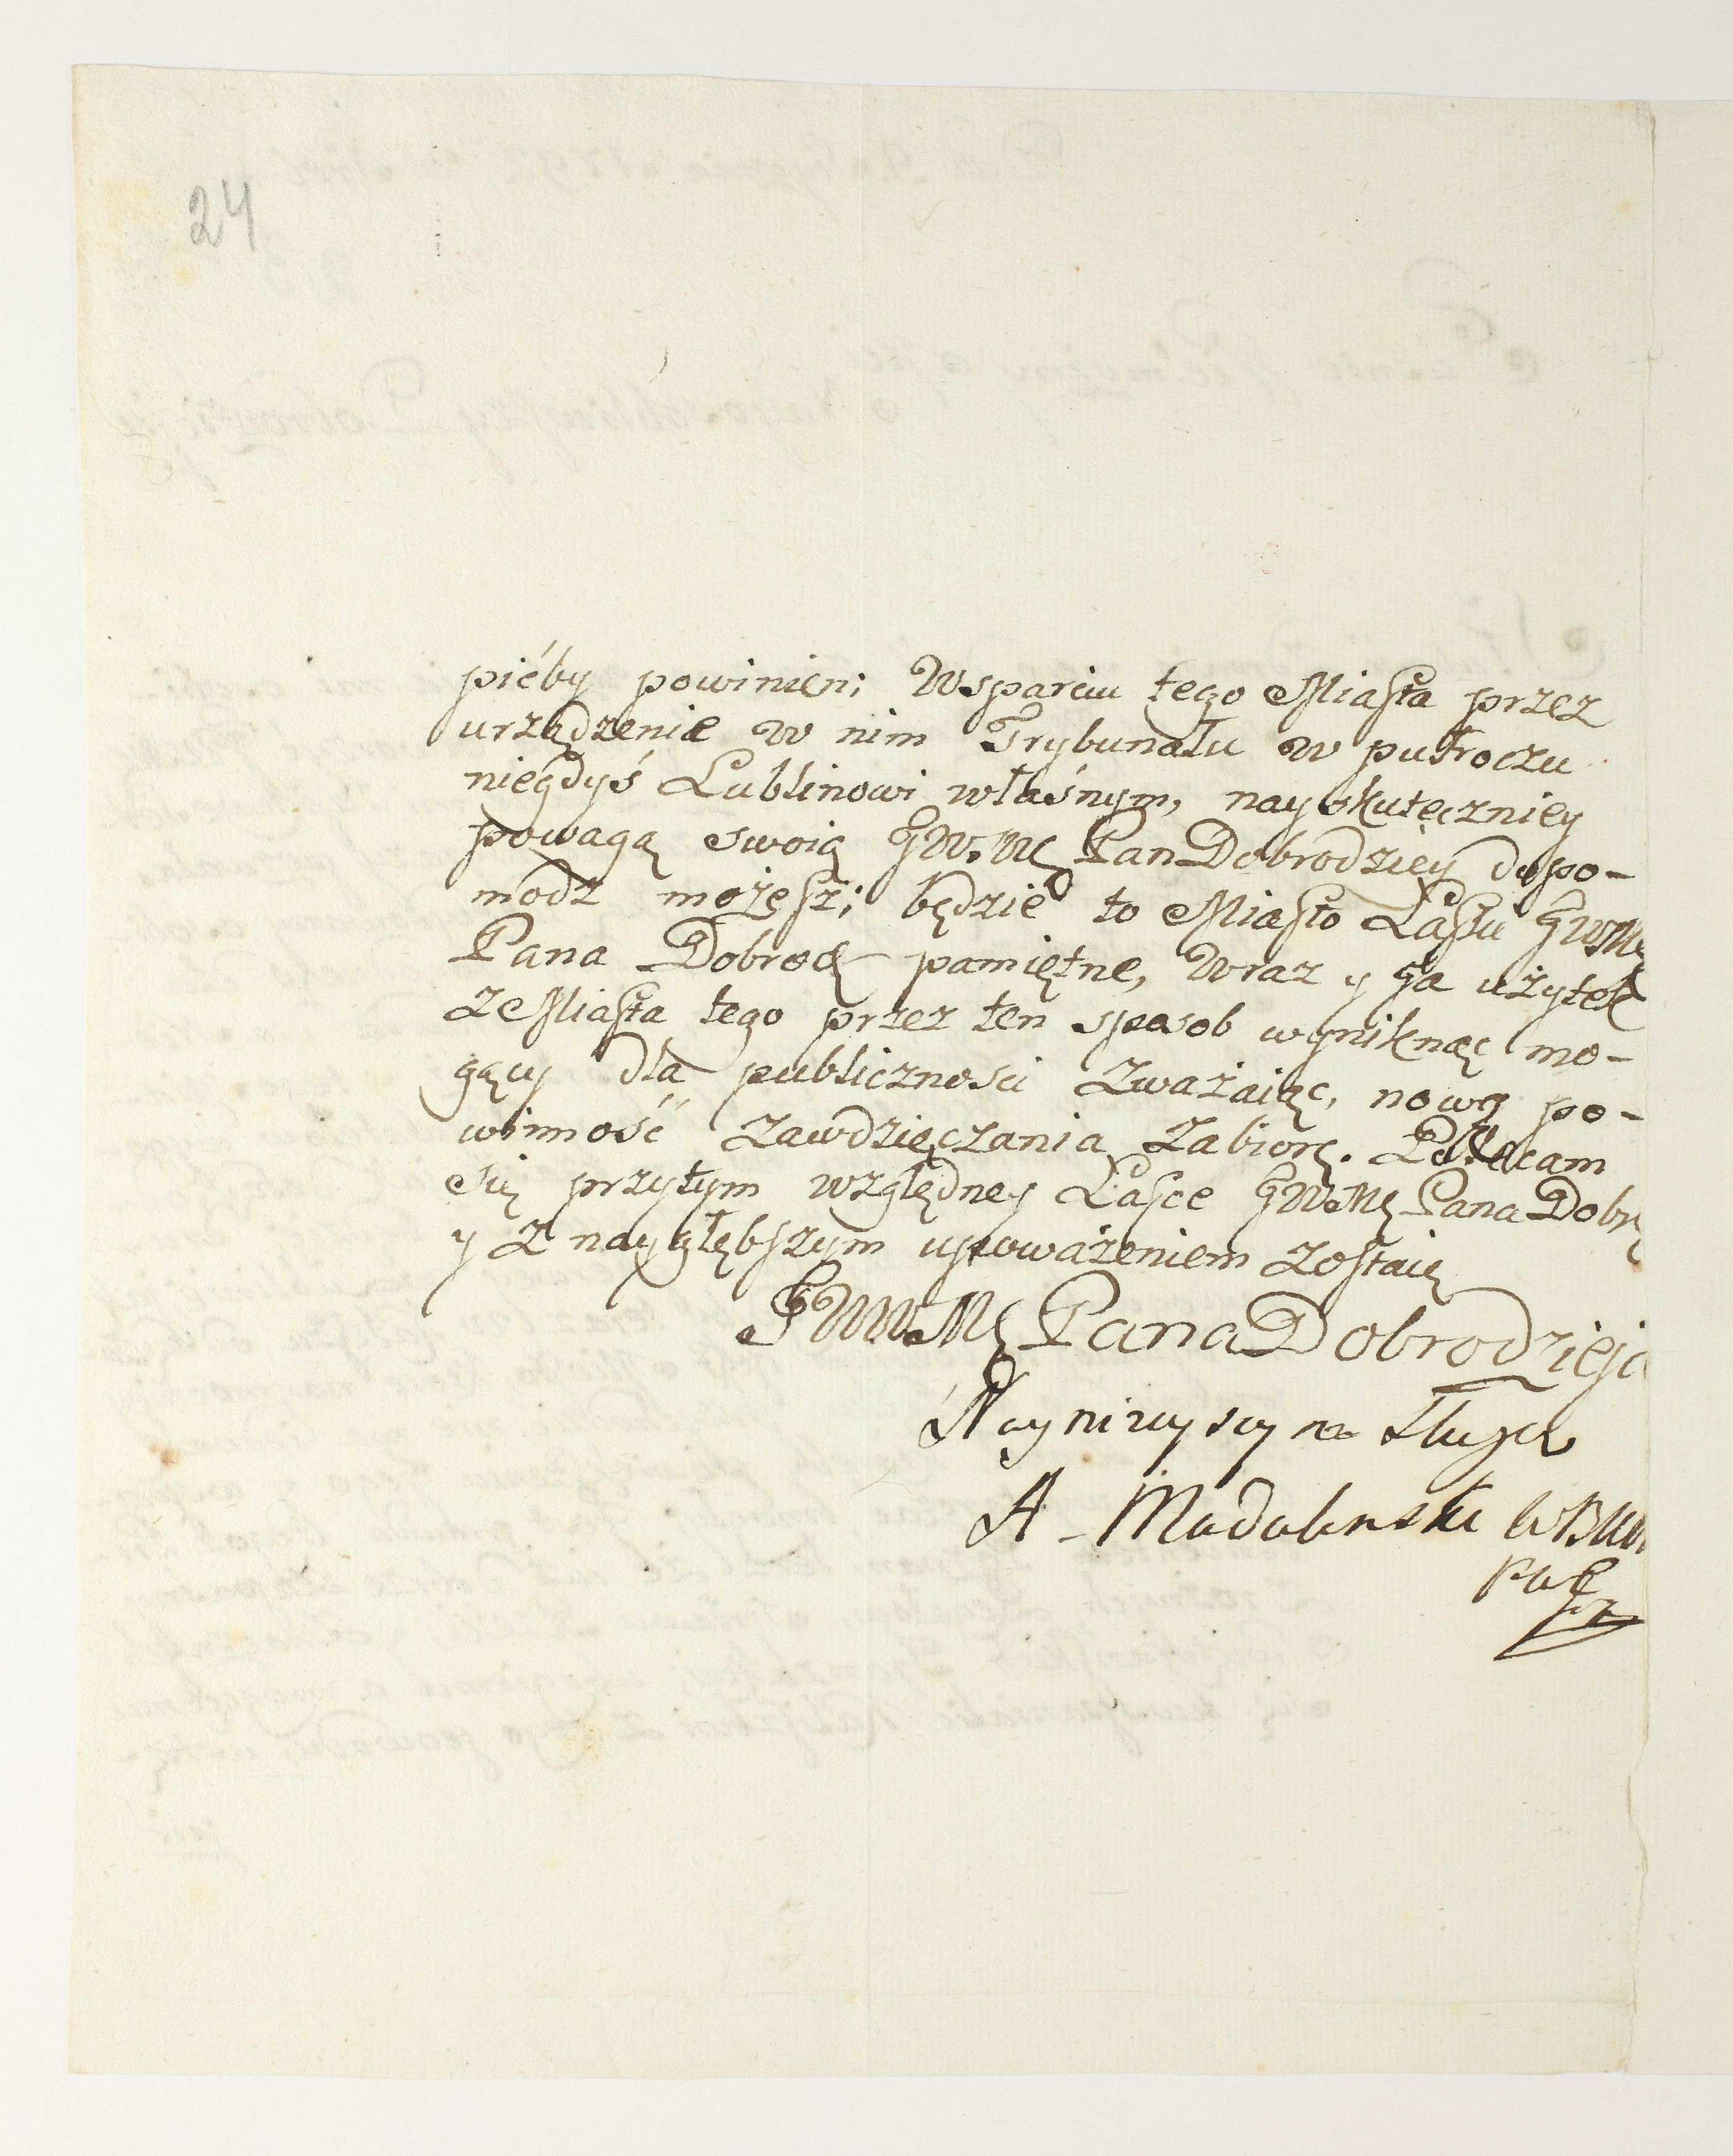 24
pićby powinien; Wsparciu tego Miasta przez
urządzenie w nim Trybunału w pułroczu
niegdyś Lublinowi właśnym, nayskuteczniey
powagą swoią JW. WC Pan Dobrodziey dopo-
modz możesz; będzie to Miasto Łasku JWWC
Pana Dobrodz pamiętne, Wraz y Ja użytek
z Miasta tego przez ten sposob wyniknąć mo-
gący dla publicznosci zważaiąc, nową po-
winność zawdzięczania zabiorę. Polecam
się przytym względney Łasce JWWC Pana Dobr
y z naygłębszym uposzażeniem zostaię
JWWWC Pana Dobrodzieja
Nayniszy sługa
A Madaliński